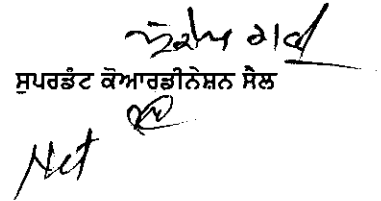 ਸੁਪਰਡੰਟ ਕੋਆਰਡੀਨੇਸ਼ਨ ਸੈਲ
Net